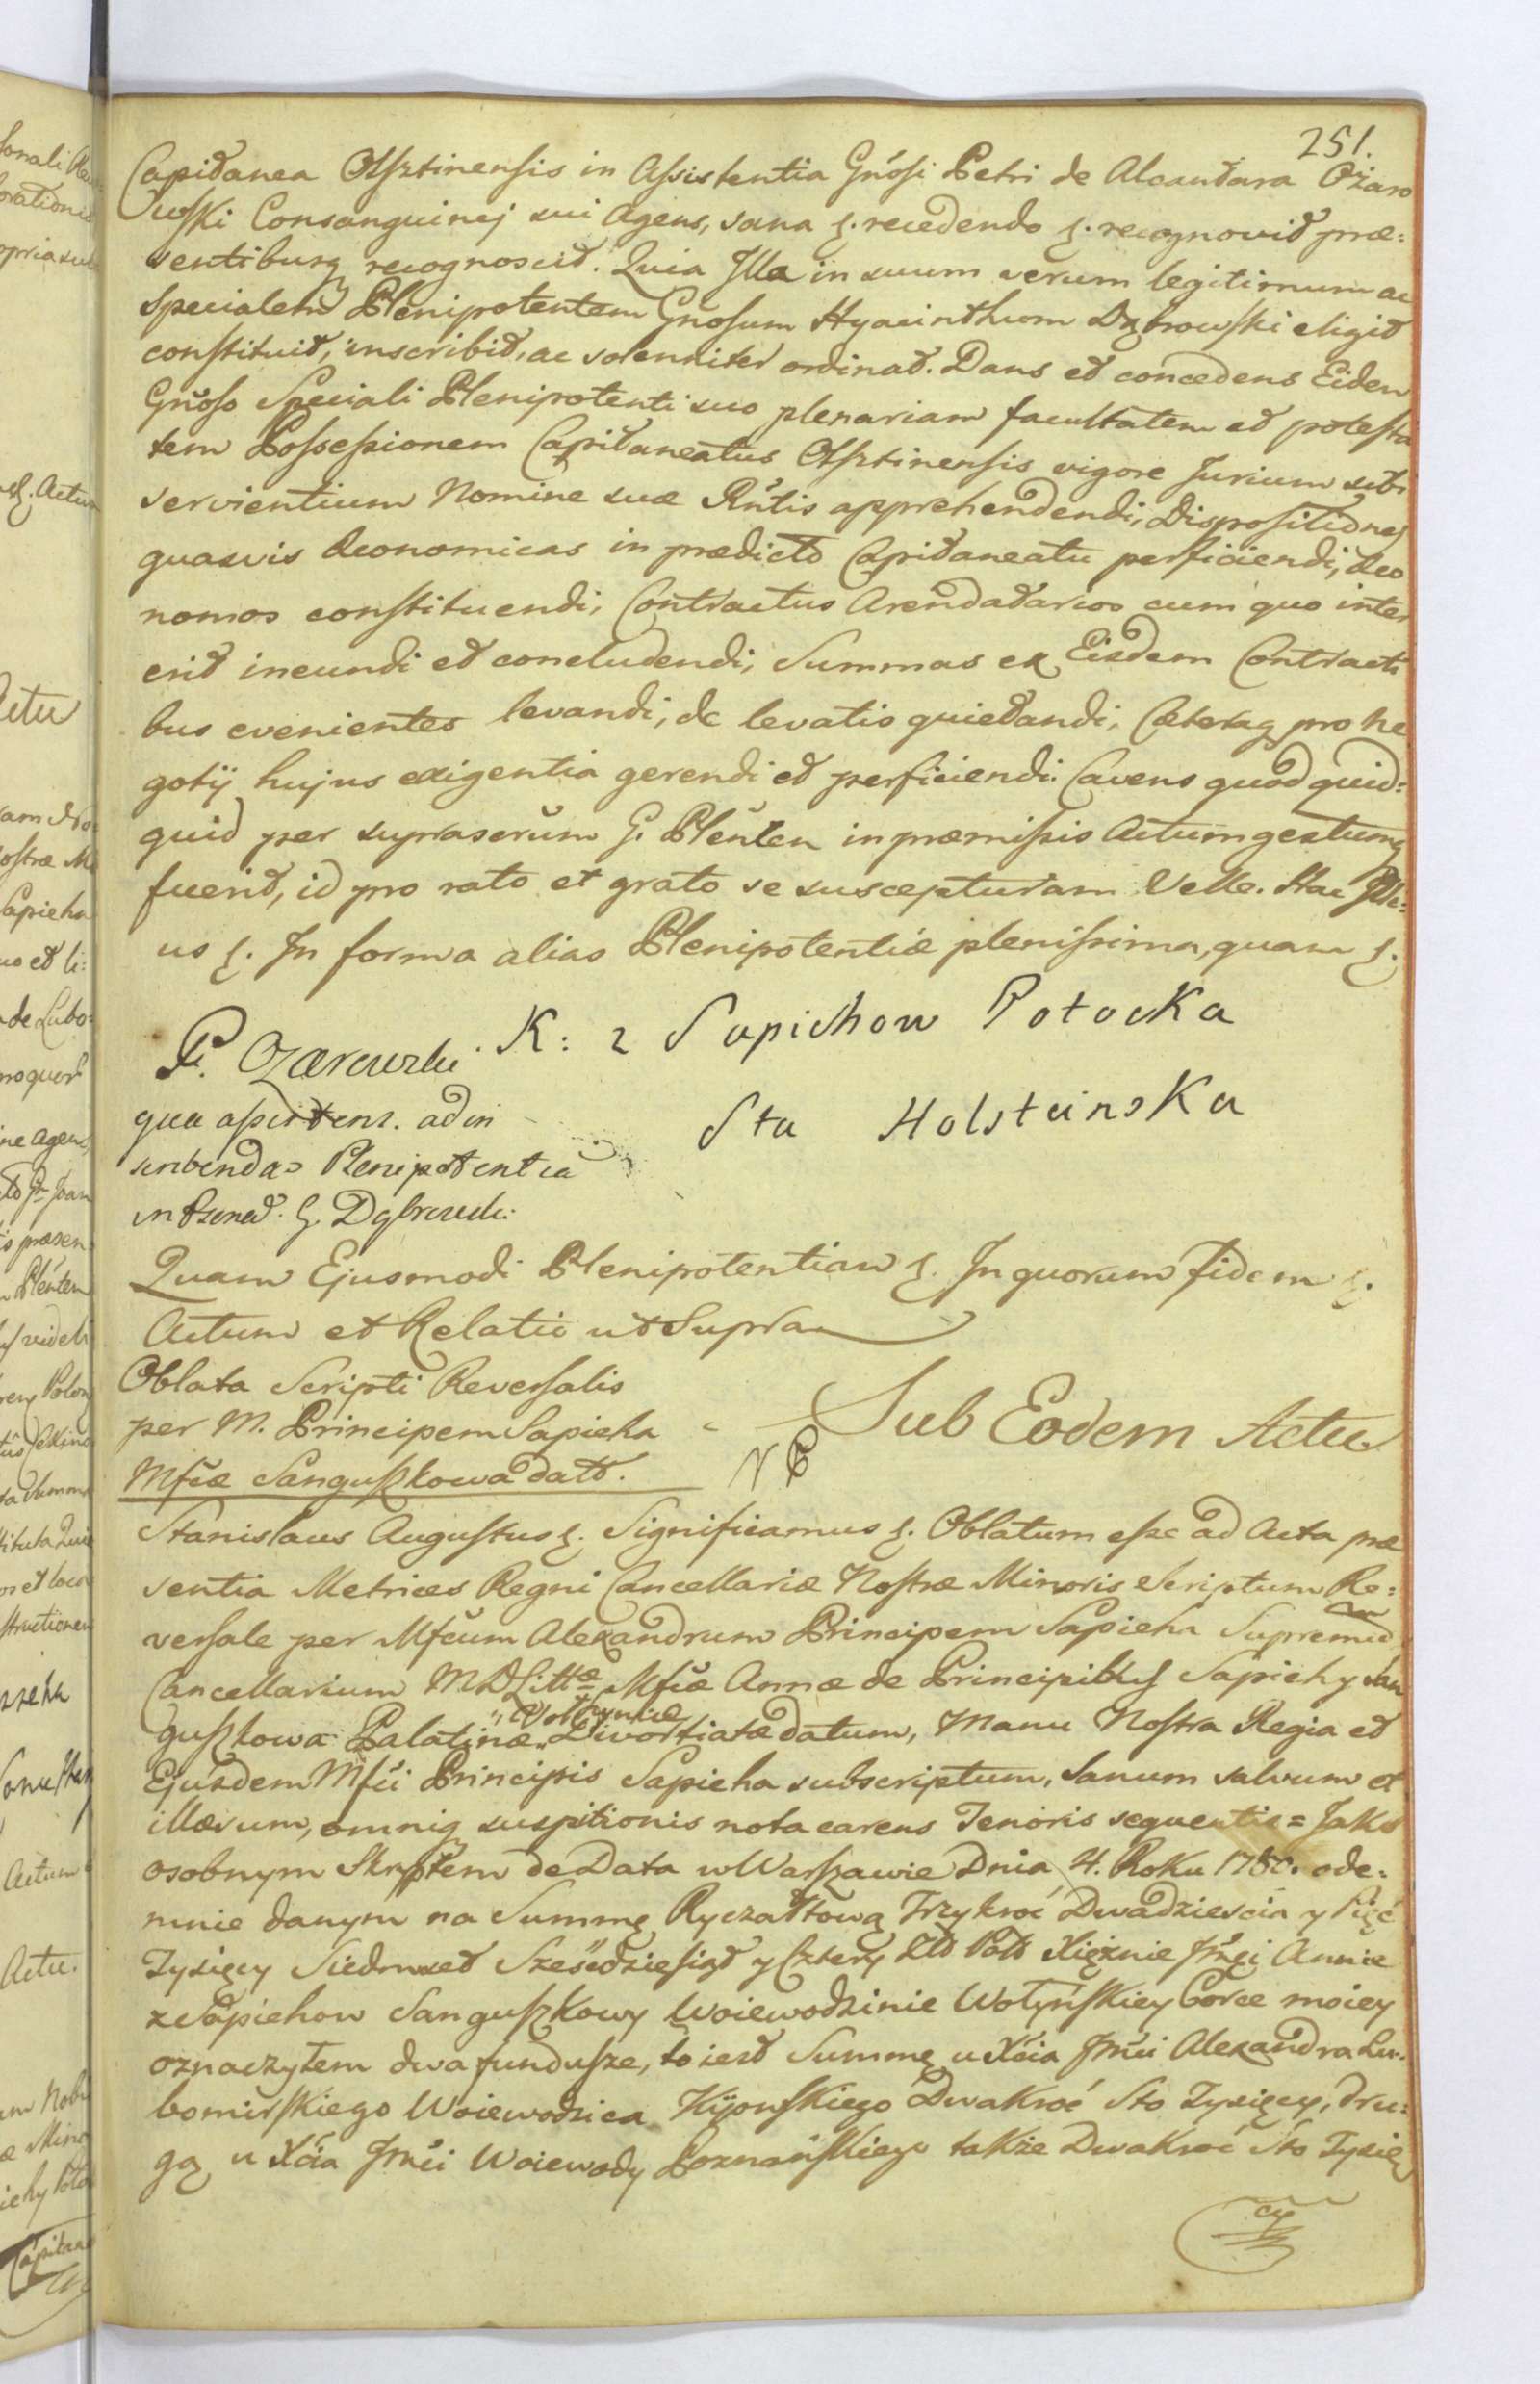 251.
Capitanea Olsztinensis in Assistentia Gnosi Petri de Alcantara Ożaro
wski Consanguinej sui Agens, sana &. recedendo &. recognovit præ:
sentibusq recognoscit. Quia Illa in suum verum legitimum ac
specialem Plenipotentem Gnosum Hyacinthum Dąbrowski eligit
constituit, inscribit, ac solenniter ordinat. Dans et concedens Eidem
Gnoso Speciali Plenipotenti suo plenariam facultatem et potesta
tem Possessionem Capitaneatus Olsztinensis vigore Jurium sibi
servientium Nomine suæ Rntis apprehendendi, Dispositiones
quasvis Æconomicas in prædicto Capitaneatu perficiendi, Æco
nomos constituendi, Contractus Arendatarios cum quo inter
erit ineundi et concludendi, Summas ex Eisdem Contracti
bus evenientes levandi, de levatis quietandi, Cæteraq pro ne
gotij hujus exigentia gerendi et perficiendi. Cavens quod quid:
quid per suprascrum G. Plenten in præmissis Actum gestumq
fuerit, id pro rato et grato se suscepturam Velle. Hac Me:
us &. In forma alias Plenipotentiæ plenissima, quam &.
P. Ozarowski K: z Sapiehow Potocka
qua assistens. ad in Sta Holsteinska
scribenda Plenipotentia
in Personad. G. Dąbrowski.
Quam Ejusmodi Plenipotentiam &. In quorum fidem &.
Actum et Relatio ut Supra
Oblata Scripti Reversalis
per M. Principem Sapieha
Mfcæ Sanguszkowa dati.
Sub Eodem Actu
Stanislaus Augustus &. Significamus &. Oblatum esse ad Acta præ
sentia Metrices Regni Cancellariæ Nostræ Minoris Scriptum Re:
versale per Mfcum Alexandrum Principem Sapieha Supremum
Cancellarium MDLittæ Mfcæ Annæ de Principibus Sapiehy San
guszkowa Palatinæ "Volhyniæ" Divortiatæ datum, Manu Nostra Regia et
Ejusdem Mfci Principis Sapieha subscriptum, sanum salvum et
illæsum, omniq suspitionis nota carens Tenoris sequentis = Jako
osobnym Skryptem de Data w Warszawie Dnia 4. Roku 1780. ode:
mnie danym na Summę Ryczałtową Trzykroć Dwadziescia y Pięć
Tysięcy Siedmset Sześćdziesiąt y Cztery Złł Poł Xiężnie Jmci Annie
z Sapiehow Sanguszkowy Woiewodzinie Wołyńskiey Corce moiey
oznaczyłem dwa fundusze, to iest Summę u Xcia Jmci Alexandra Lu:
bomirskiego Woiewodzica Kijowskiego Dwakroć Sto Tysięcy, dru:
gą u Xcia Jmci Woiewody Poznańskiego także Dwakroć Sto Tysię
cy